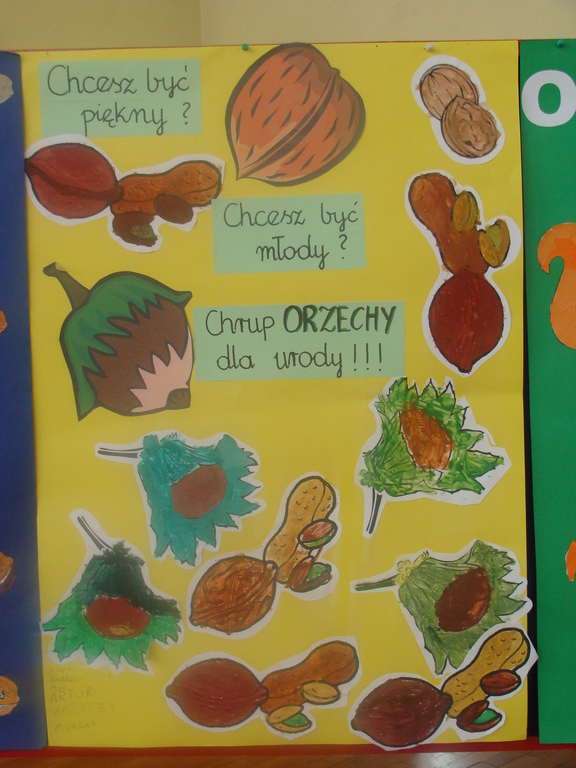 Chcesz być
piękny ?
Chcesz być
młody ?
Chrup ORZECHY
dla urody !!!
O
ARTUR